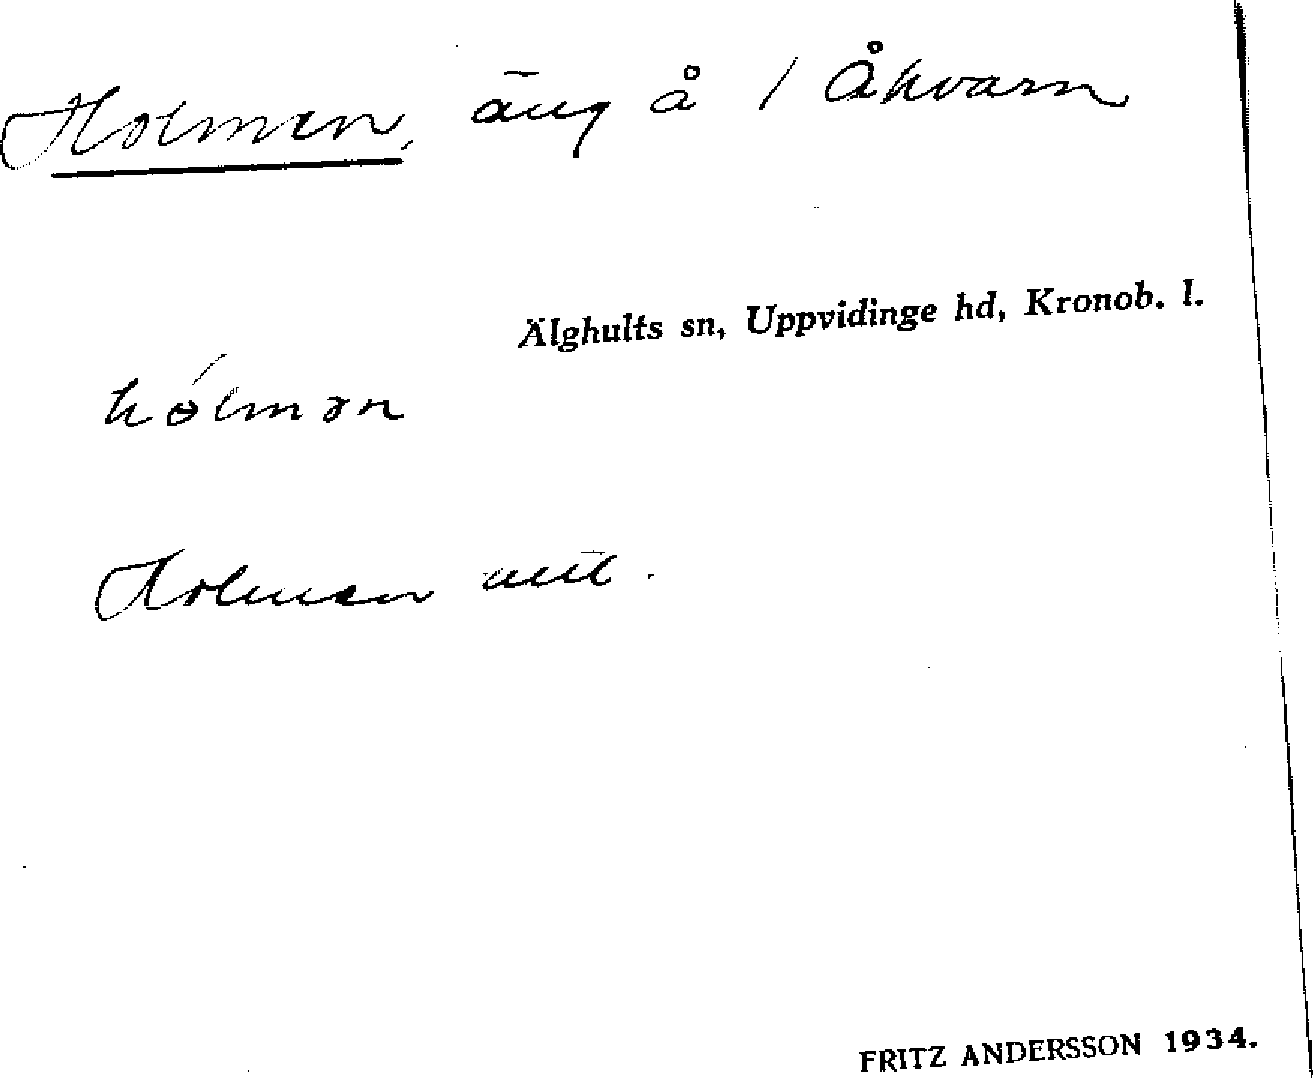 Holmen, äng å 1 Åkvarn
Älghults sn, Uppvidinge hd, Kronob. l.
hólmən
Holmen
FRITZ ANDERSSON 1934.